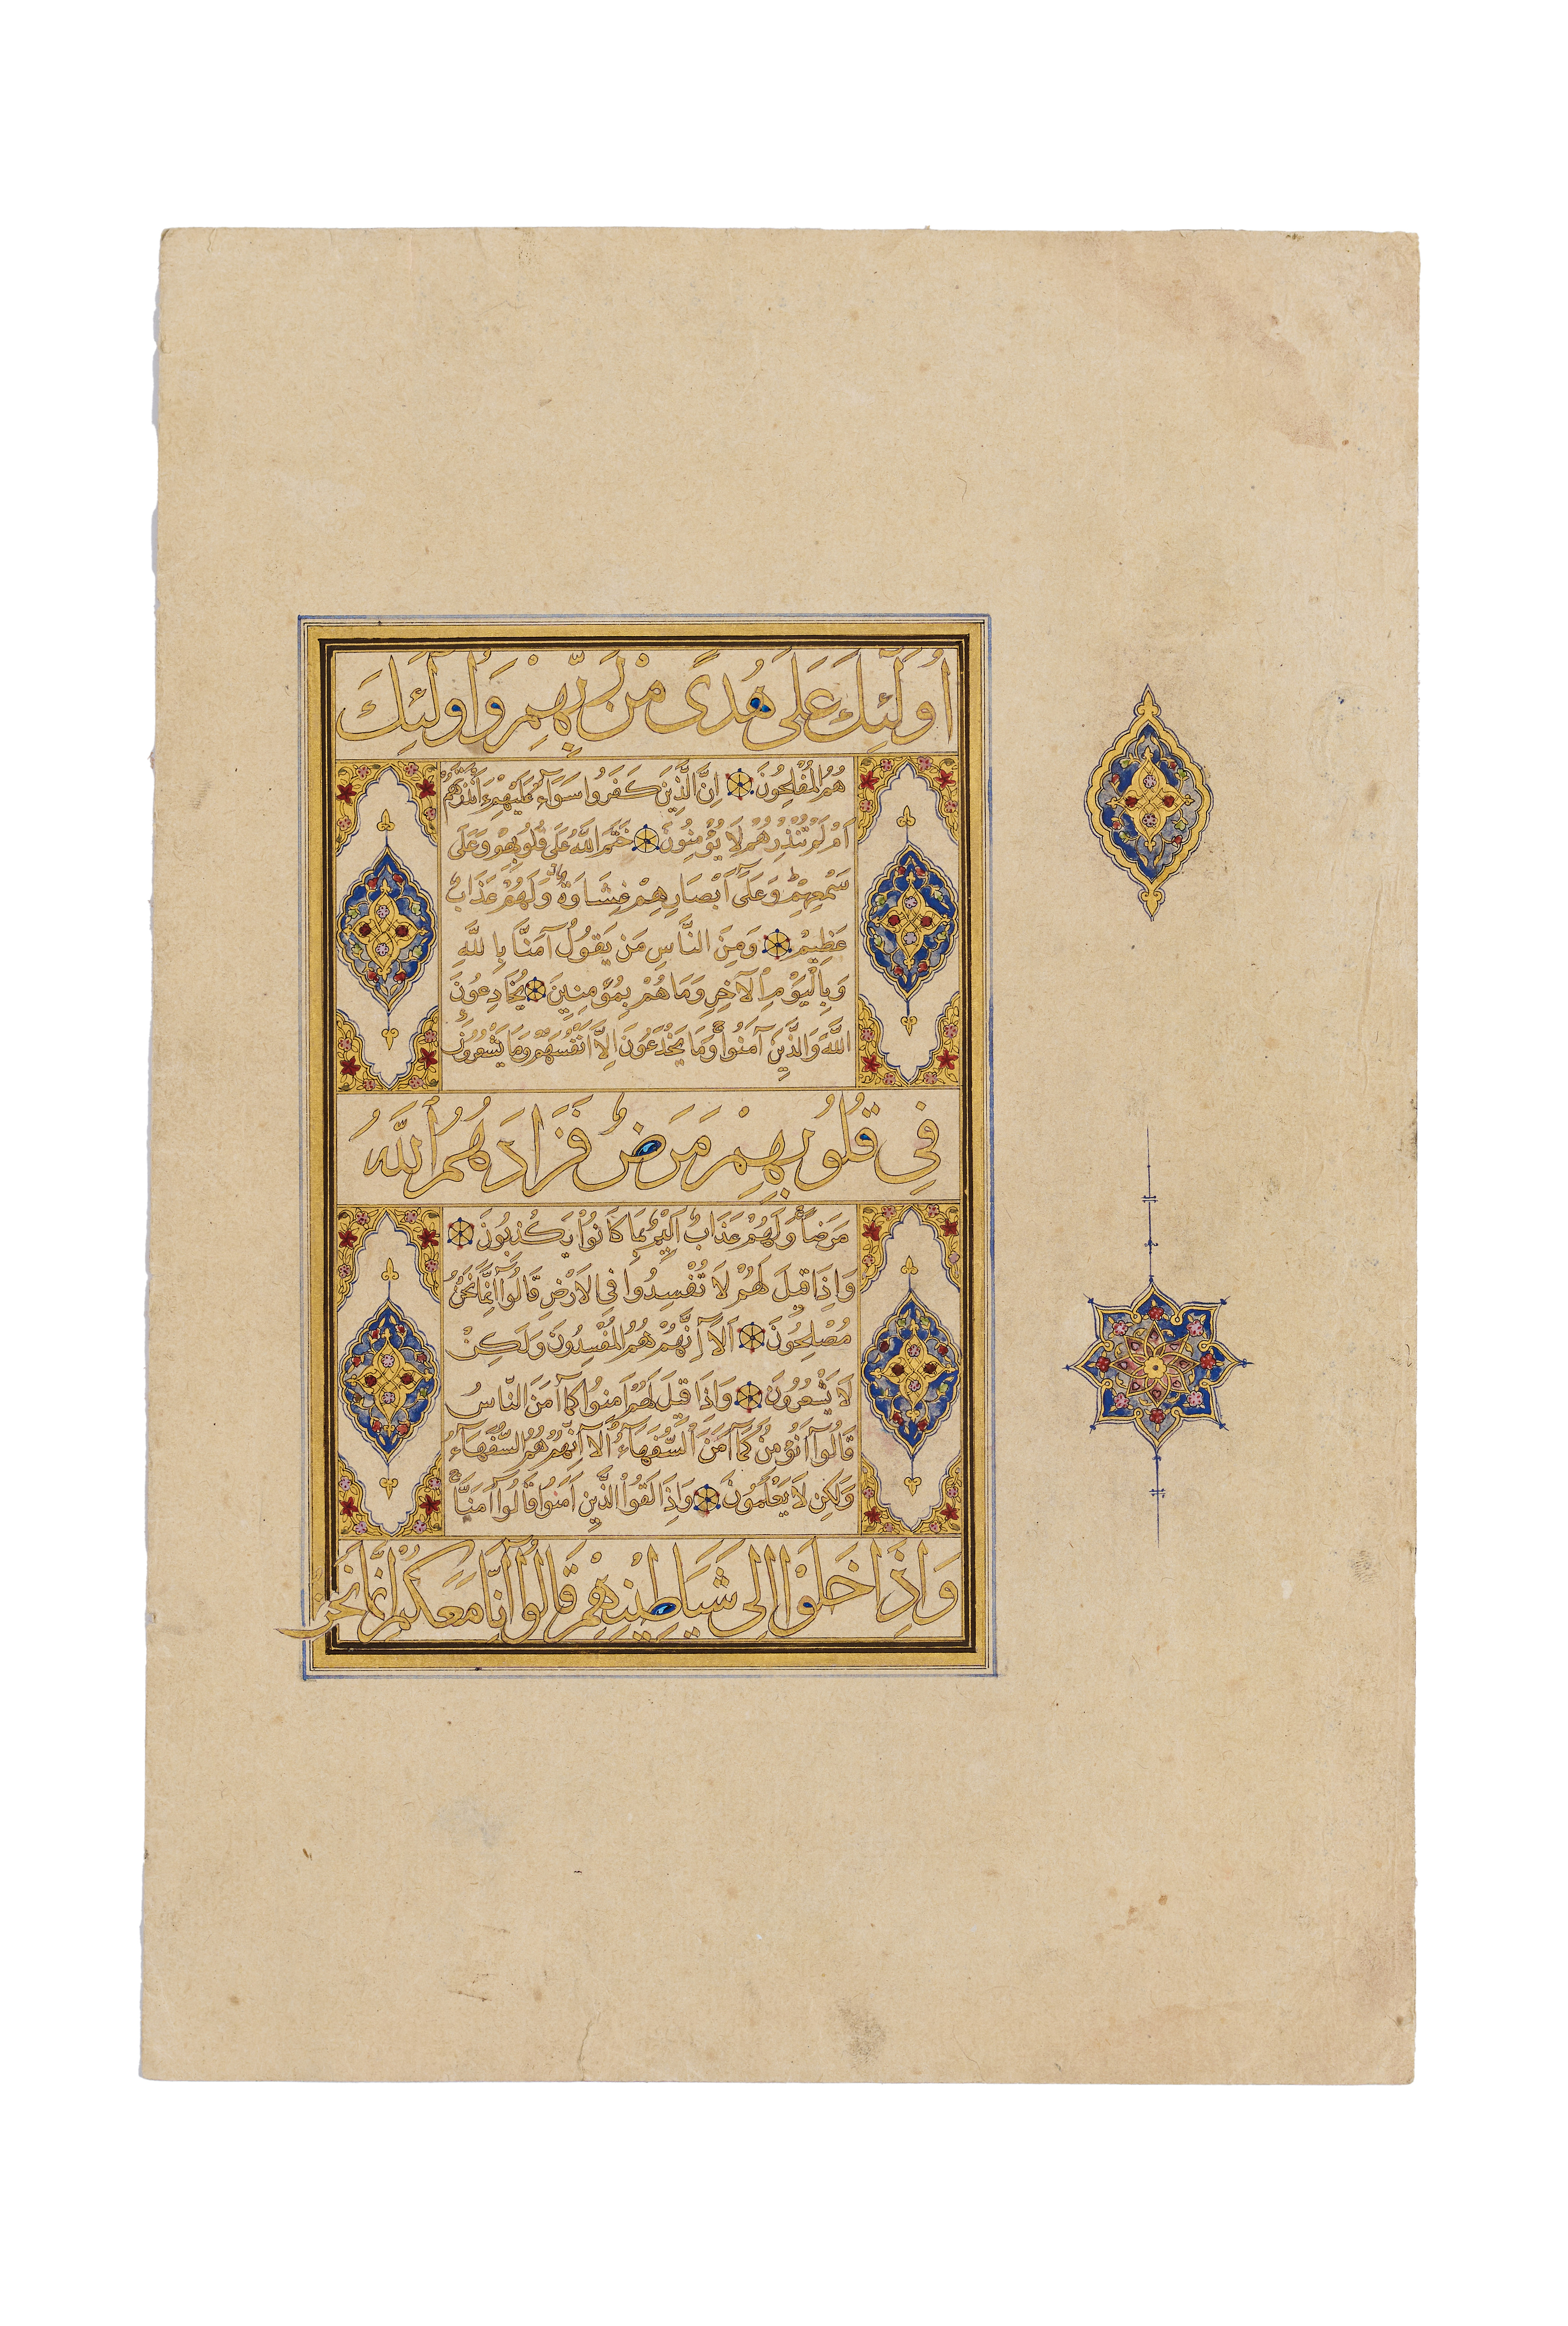 أُولَٰئِكَ عَلَىٰ هُدًى مِنْ رَبِّهِمْ وَأُولَٰئِكَ
هُمُ الْمُفْلِحُونَ اِنَّ الَّذِينَ كَفَرُوا سَوَآءٌ عَلَيْهِمْ ءَاَنْذَرْتَهُمْ
اَمْ لَمْ تُنْذِرْهُمْ لَا يُؤْمِنُونَ خَتَمَ اللَّهُ عَلَى قُلُوبِهِمْ وَعَلَى
سَمْعِهِمْ وَعَلَى اَبْصَارِهِمْ غِشَاوَةٌ وَلَهُمْ عَذَابٌ
عَظِيمٌ وَمِنَ النَّاسِ مَن يَقُولُ آمَنَّا بِاللَّهِ
وَبِالْيَوْمِ الْآخِرِ وَمَا هُمْ بِمُؤْمِنِينَ يُخَادِعُونَ
اللَّهَ وَالَّذِينَ آمَنُوا وَمَا يَخْدَعُونَ اِلَّا اَنْفُسَهُمْ وَمَا يَشْعُرُونَ
فِي قُلُوبِهِمْ مَرَضٌ فَزَادَهُمُ اللَّهُ
مَرَضاً وَلَهُمْ عَذَابٌ اَلِيمٌ بِمَا كَانُوا يَكْذِبُونَ
وَاِذَا قِيلَ لَهُمْ لَا تُفْسِدُوا فِي الْاَرْضِ قَالُوا اِنَّمَا نَحْنُ
مُصْلِحُونَ اَلَا اِنَّهُمْ هُمُ الْمُفْسِدُونَ وَلَكِنْ
لَا يَشْعُرُونَ وَاِذَا قِيلَ لَهُمْ اٰمِنُوا كَمَا آمَنَ النَّاسُ
قَالُوا اَنُؤْمِنُ كَمَا آمَنَ السُّفَهَاءُ اَلَا اِنَّهُمْ هُمُ السُّفَهَاءُ
وَلَكِن لَا يَعْلَمُونَ وَاِذَا لَقُوا الَّذِينَ اٰمَنُوا قَالُوا آمَنَّا
وَاِذَا خَلَوْا اِلَى شَيَاطِينِهِمْ قَالُوا اِنَّا مَعَكُمْ اِنَّمَا نَحْنُ